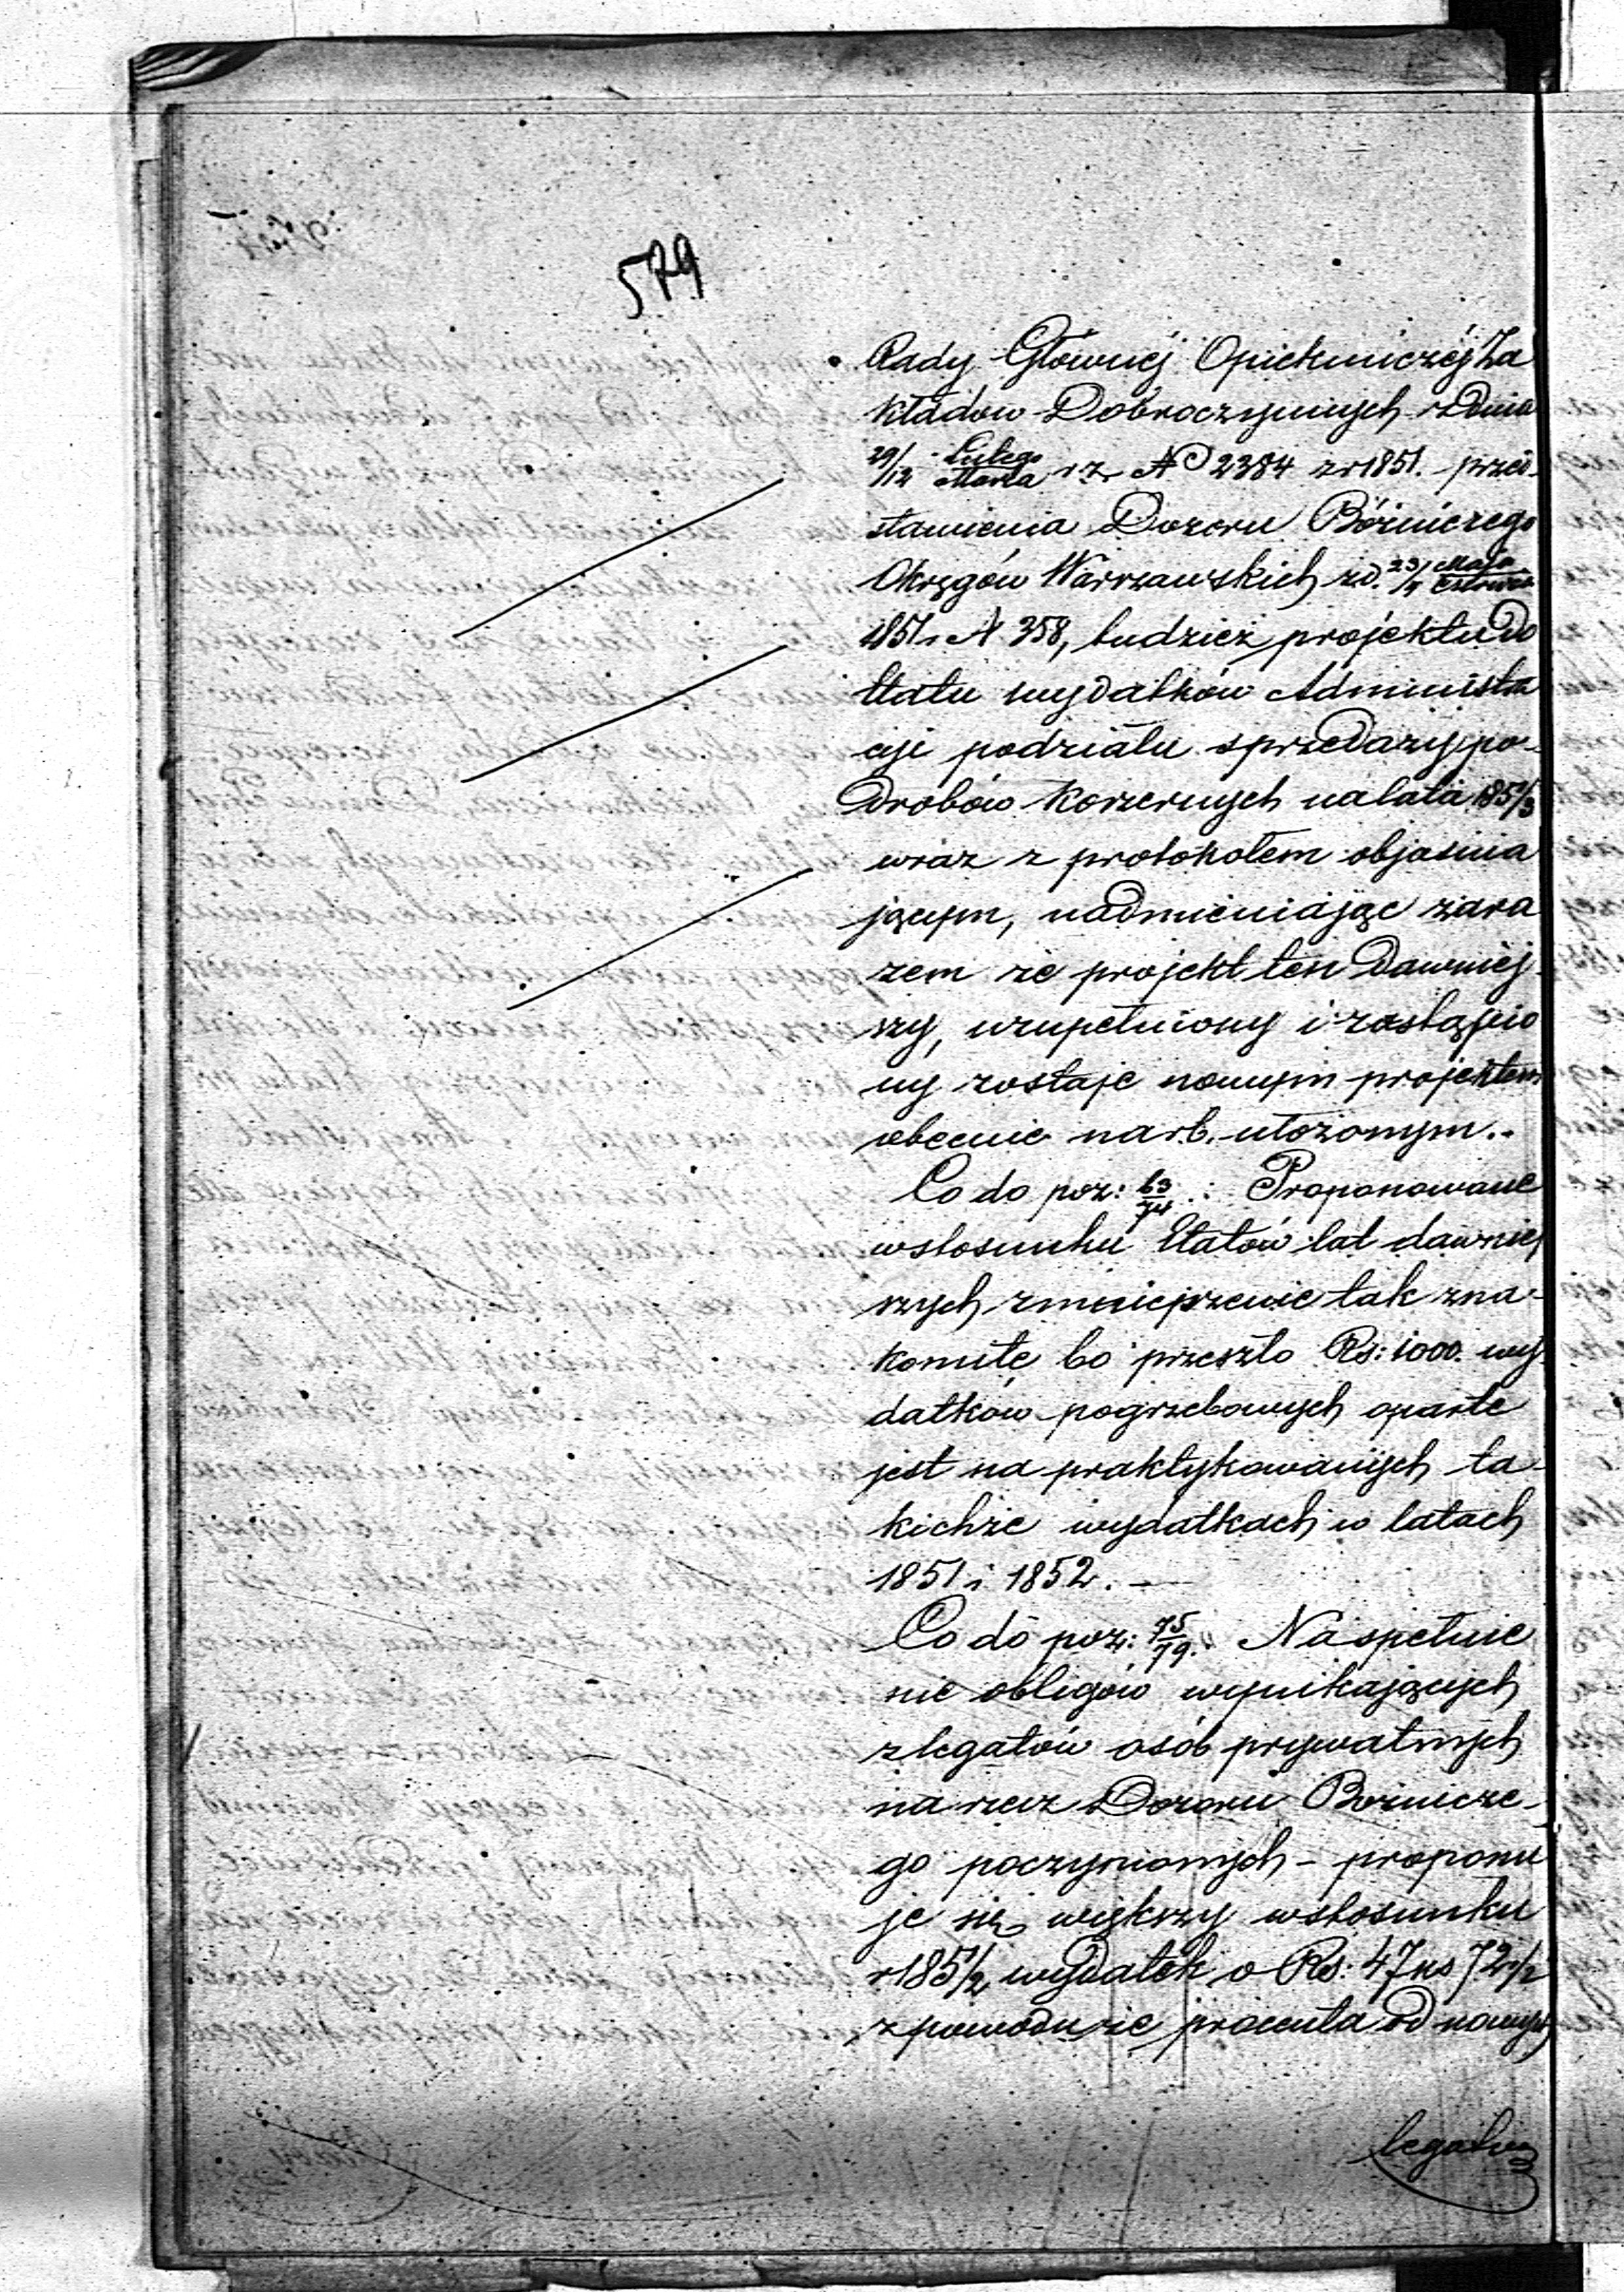 579
Rady Głównej Opiekuńczej Za
kładów Dobroczynnych z dnia
29/12 Lutego/Marca r. z. N 2384 z r 1851. przed
stawienia Dozoru Bóżniczego
Okręgów Warszawskich z d. 23/4 Maja/Czerwca
1851 r. N 358, tudzież projektu do
Etatu wydatków Administra
cyi podziału sprzedaży po-
drobów koszernych na lata 1851/3
wraz z protokołem objaśnia
jącym, nadmieniając zara
zem że projekt ten dawniej
szy, uzupełniony i zastąpio
ny zostaje nowym projektem
obecnie na r. b. ułożonym.
Co do poz: 63/74. : Proponowane
w stosunku Etatów lat dawniej
szych zmniejszenie tak zna-
komite bo przeszło Rs: 1000. wy
datków pogrzebowych oparte
jest na praktykowanych ta-
kichże wydatkach w latach
1851 i 1852. —
Co do poz: 75/79. Na spełnie
nie obligów wynikających
z legatów osób prywatnych
na rzecz Dozoru Bożnicze-
go poczynionych – proponu
je się większy w stosunku
r 1851/2 wydatek o Rs: 47 ks 72 1/2
z powodu że procenta od nowych
legatów